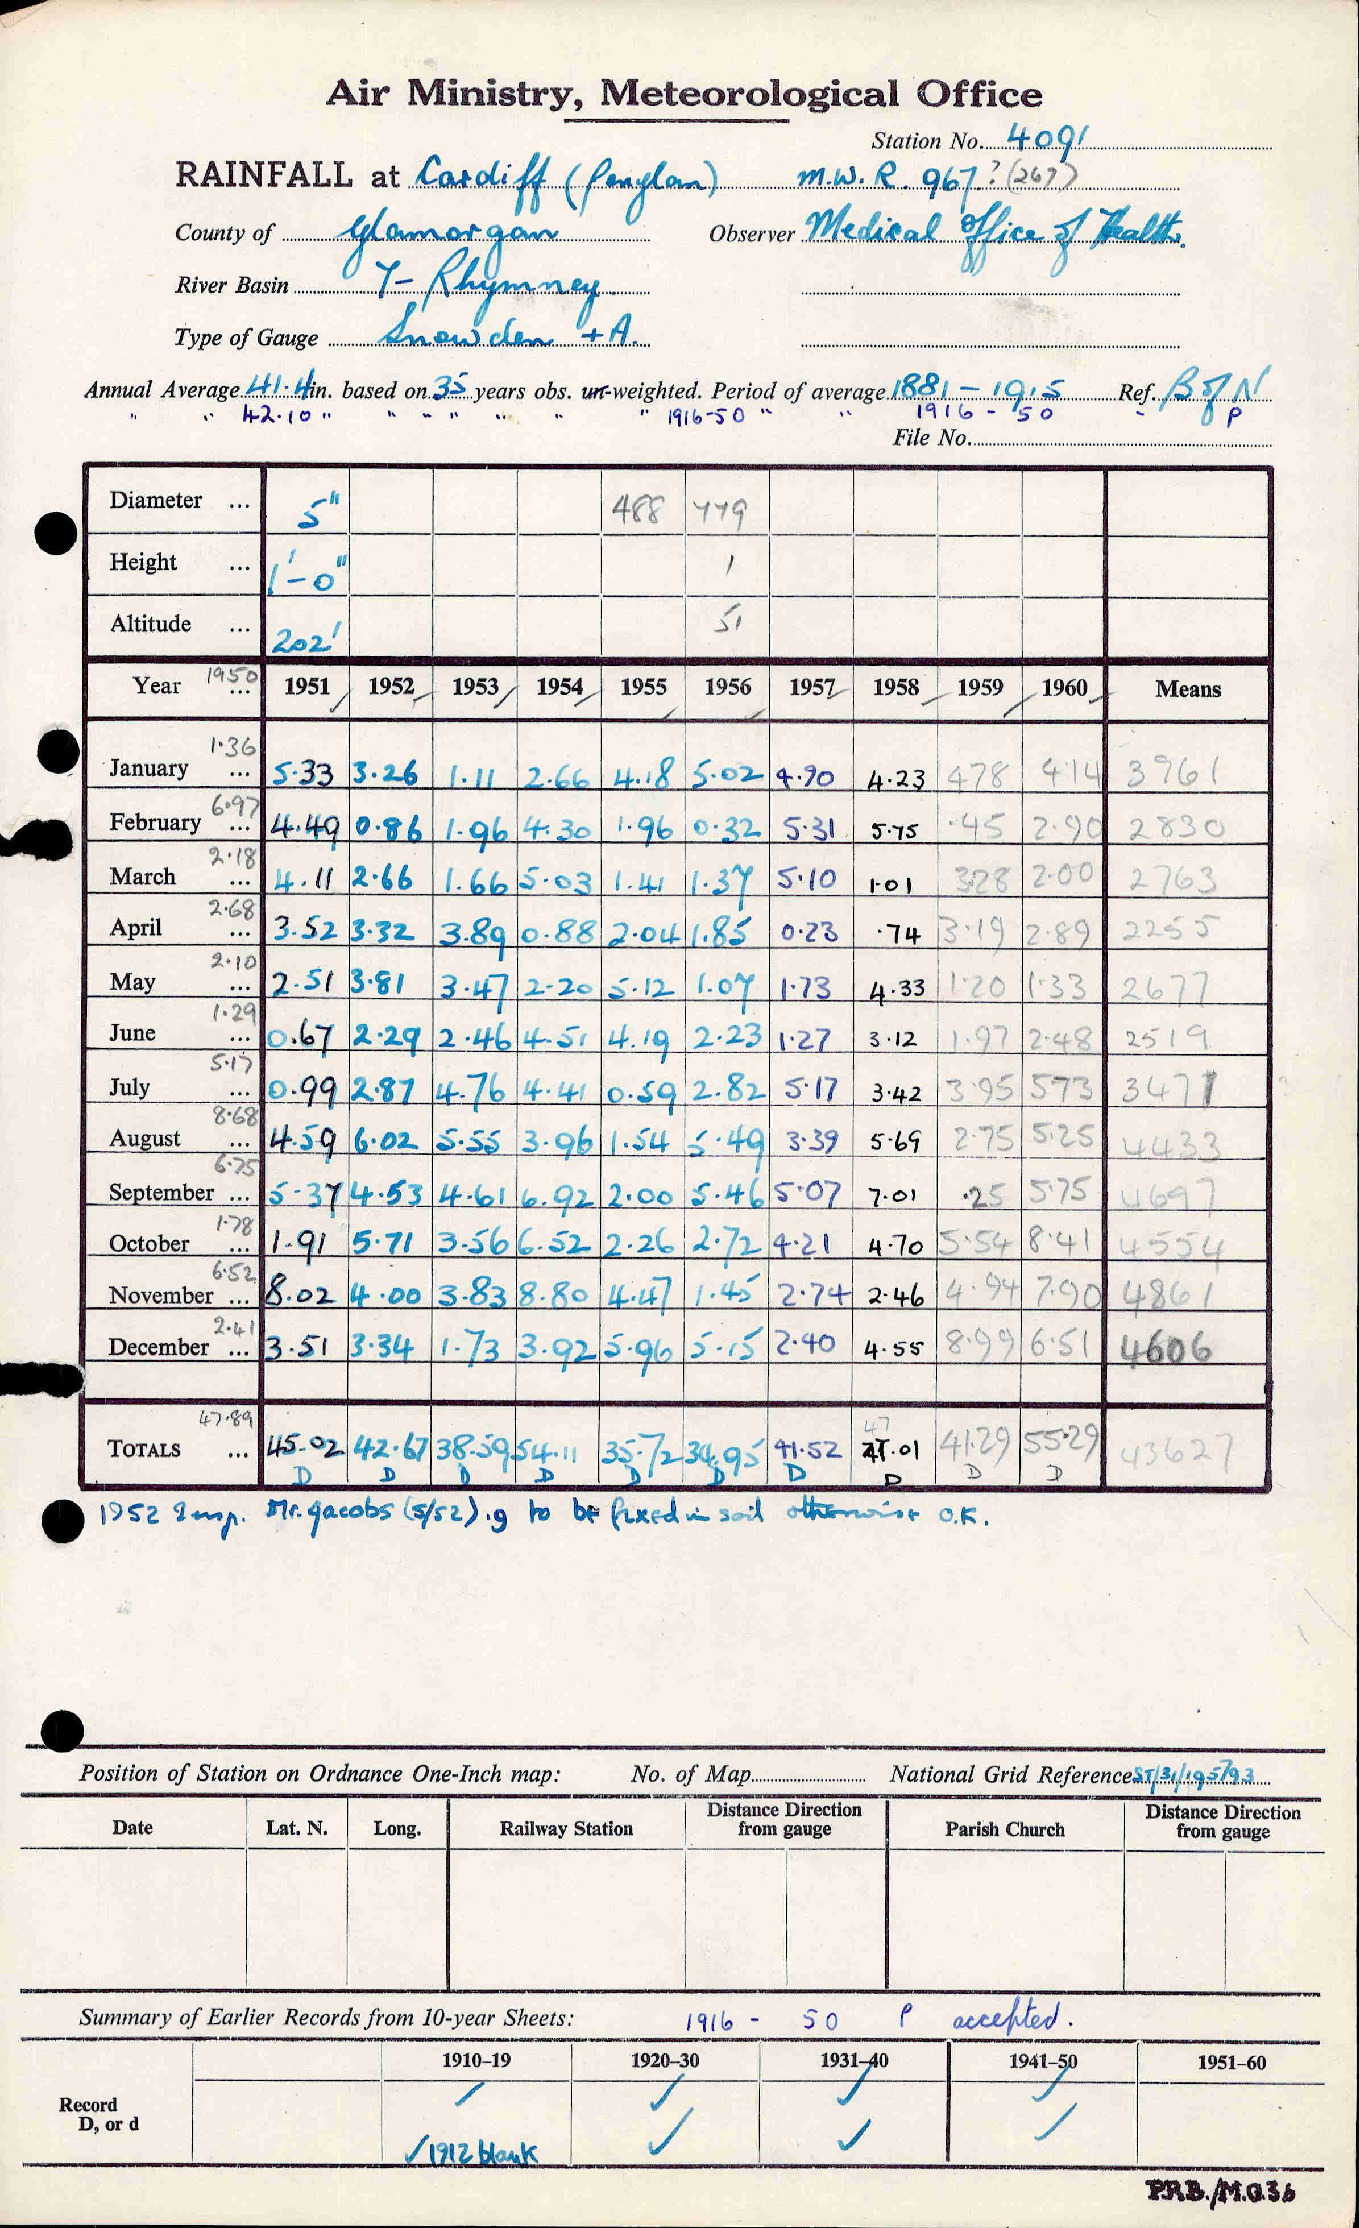 Air Ministry, Meteorological Office
Station No. 4091
RAINFALL at Cardiff (Penylan) M.W.R. 967? (267)
County of Glamorgan Observer Medical Office of Health.
River Basin 7- Rhymney
Type of Gauge Snowdon + A.
Annual Average 41.4 in. based on 35 years obs. un-weighted. Period of average 1881 - 1915 Ref. B of N
" " 42.10 " " " " " " " 1916-50 " " 1916 - 50 " P
File No.
Diameter ... 5" 488 779
Height ... 1'-0" 1
Altitude ... 202' 51
Year ... 1950 1951 1952 1953 1954 1955 1956 1957 1958 1959 1960 Means
January ... 1.36 5.33 3.26 1.11 2.66 4.18 5.02 4.90 4.23 478 414 3961
February ... 6.97 4.49 0.86 1.96 4.30 1.96 0.32 5.31 5.75 .45 2.90 2830
March ... 2.18 4.11 2.66 1.66 5.03 1.41 1.37 5.10 1.01 328 2.00 2763
April ... 2.68 3.52 3.32 3.89 0.88 2.04 1.85 0.23 .74 3.19 2.89 2255
May ... 2.10 2.51 3.81 3.47 2.20 5.12 1.07 1.73 4.33 1.20 1.33 2677
June ... 1.29 0.67 2.29 2.46 4.51 4.19 2.23 1.27 3.12 1.97 2.48 2519
July ... 5.17 0.99 2.87 4.76 4.41 0.59 2.82 5.17 3.42 3.95 573 3471
August ... 8.68 4.59 6.02 5.55 3.96 1.54 5.49 3.39 5.69 2.75 5.25 4433
September ... 6.75 5.37 4.53 4.61 6.92 2.00 5.46 5.07 7.01 .25 5.75 4697
October ... 1.78 1.91 5.71 3.56 6.52 2.26 2.72 4.21 4.70 5.54 8.41 4554
November ... 6.52 8.02 4.00 3.83 8.80 4.47 1.45 2.74 2.46 4.94 7.90 4861
December ... 2.41 3.51 3.34 1.73 3.92 5.96 5.15 2.40 4.55 8.99 6.51 4606
TOTALS ... 47.89 45.02 42.67 38.59 54.11 35.72 34.95 41.52 47.01 41.29 55.29 43627
D D D D D D D D D D
1952 Insp. Mr. Jacobs (5/52). g to be fixed in soil otherwise O.K.
Position of Station on Ordnance One-Inch map: No. of Map National Grid Reference ST/31/195793
Date Lat. N. Long. Railway Station Distance Direction from gauge Parish Church Distance Direction from gauge
Summary of Earlier Records from 10-year Sheets: 1916 - 50 P accepted.
1910–19 1920–30 1931–40 1941–50 1951–60
Record
D, or d
✓ 1912 blank
P.R.B./M.O.36